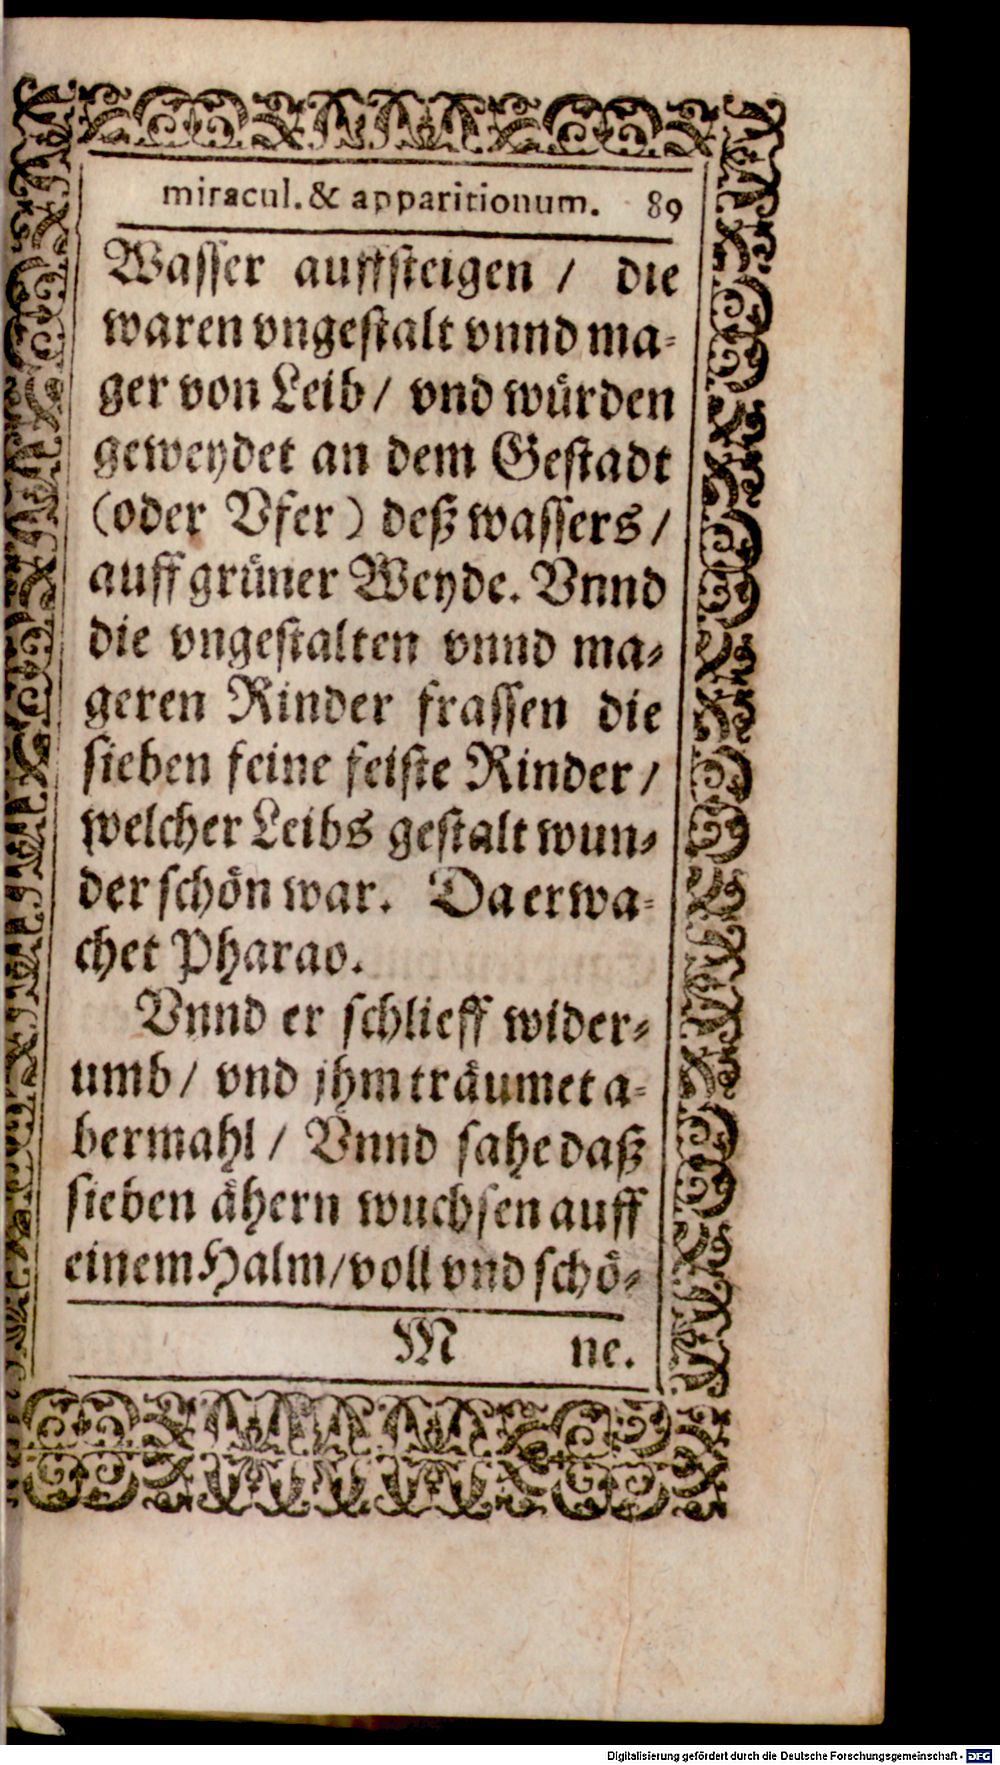 miracul. & apparitionum. 89
Wasser auffsteigen / die
waren vngestalt vnnd ma-
ger von Leib / vnd würden
geweydet an dem Gestadt
(oder Vfer) deß wassers /
auff grüner Weyde. Vnnd
die vngestalten vnnd ma-
geren Rinder frassen die
sieben feine feiste Rinder /
welcher Leibs gestalt wun-
der schön war. Da erwa-
chet Pharao.
Vnnd er schlieff wider-
umb / vnd jhm träumet a-
bermahl / Vnnd sahe daß
sieben ähern wuchsen auff
einem Halm / voll vnd schö-
M ne.
Digitalisierung gefördert durch die Deutsche Forschungsgemeinschaft - DFG